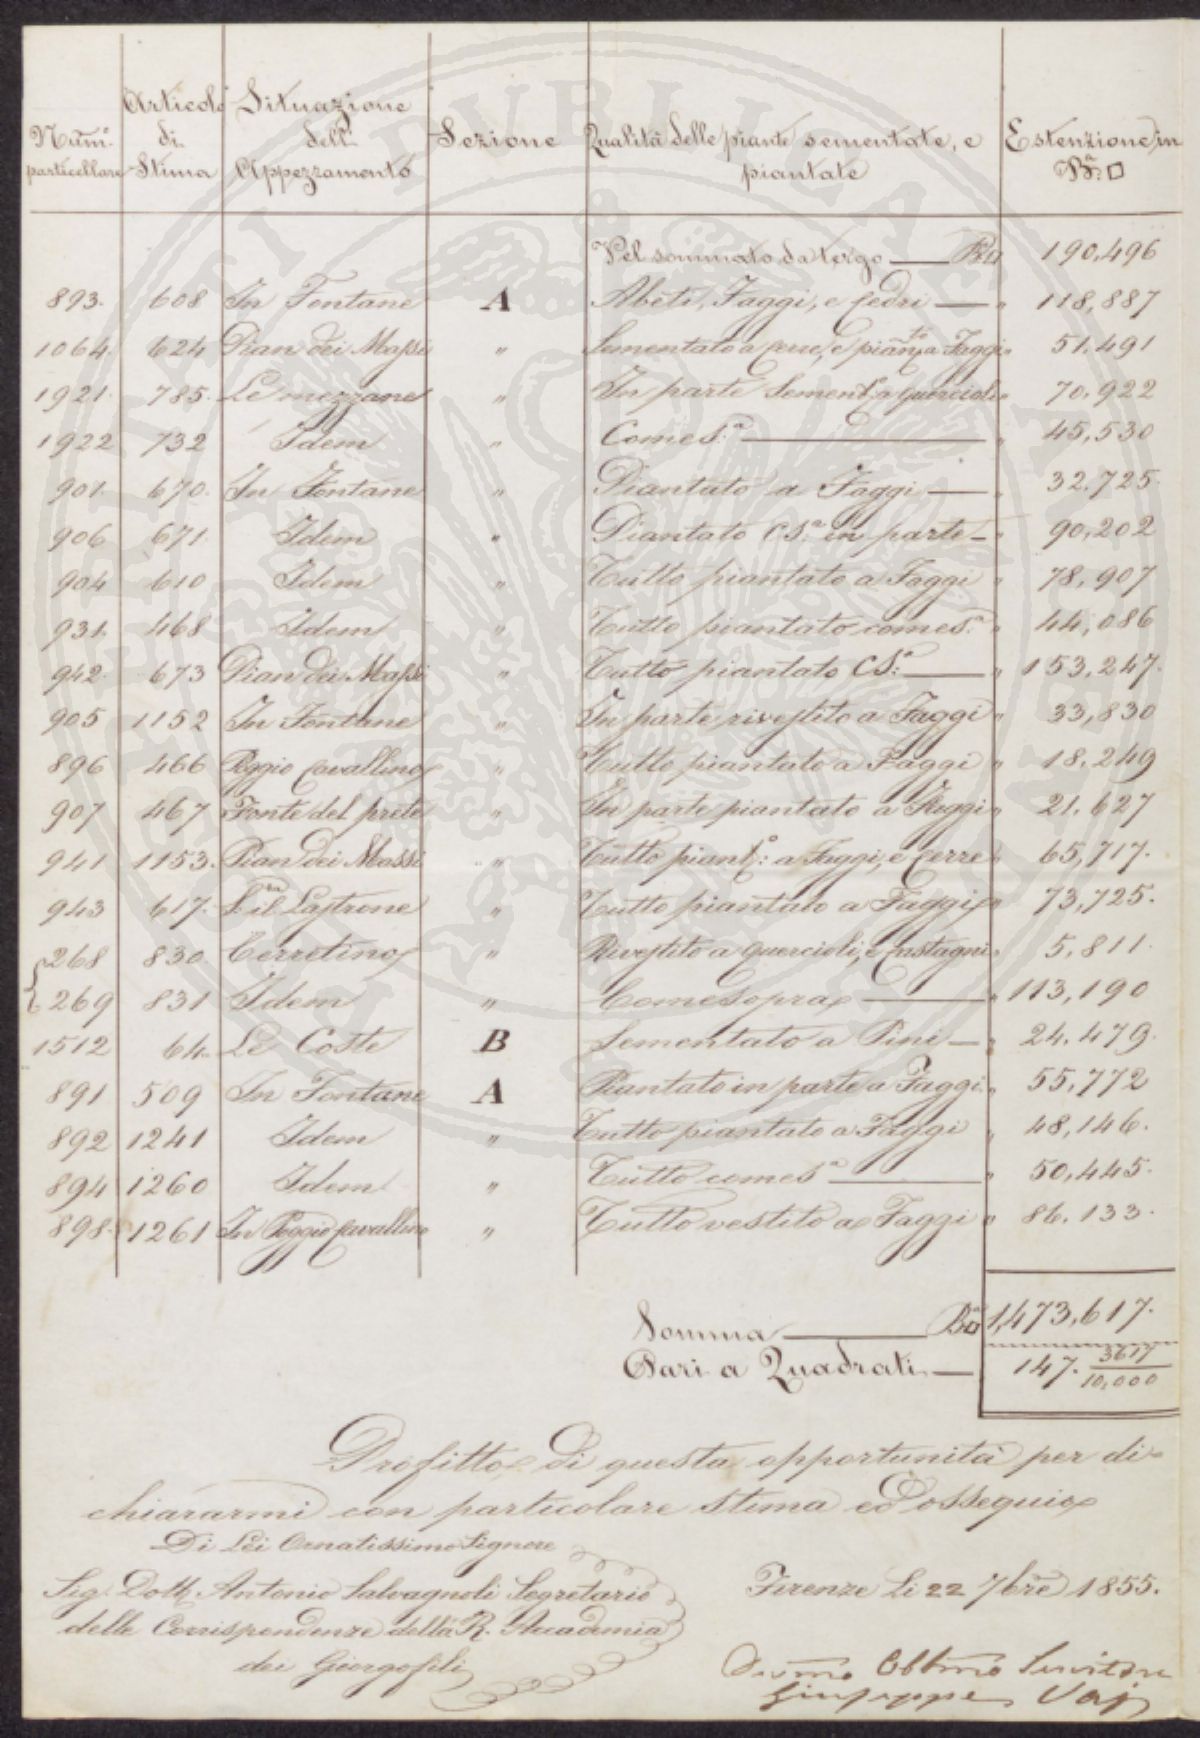 Num.° particellare | Articolo di Stima | Situazione dell' Appezzamento | Sezione | Qualità delle piante sementate, e piantate | Estenzione in Br.ª □
Pel sommato da tergo — Bª□ 190,496
893. 608 In Fontane A Abeti, Faggi, e Cedri — " 118,887
1064. 624 Pian dei Massi " Sementato a Cerre, e piantto a Faggi " 51,491
1921. 785. Le mezzane " In parte Sement.° a Quercioli " 70,922
1922 732 Idem " Comes.ª — " 45,530
901. 670. In Fontane " Piantato a Faggi — " 32,725.
906 671 Idem " Piantato C.S.ª in parte — " 90,202
904 610 Idem " Tutto piantato a Faggi " 78,907
931. 468 Idem " Tutto piantato comes.ª " 44,086
942. 673 Pian dei Massi " Tutto piantato C.S.ª — " 153,247.
905 1152 In Fontane " In parte rivestito a Faggi " 33,830
896 466 Poggio Cavallino " Tutto piantato a Faggi " 18,249
907 467 Fonte del prete " In parte piantato a Faggi " 21,627
941 1153. Pian dei Massi " Tutto piant.°: a Faggi, e Cerre " 65,717.
943 617. S.tta il Lastrone " Tutto piantato a Faggi " 73,725.
268 830 Cerretino " Rivestito a Quercioli, e Castagni " 5,811.
269 831 Idem " Comesopra — " 113,190
1512 64. Le Coste B Sementato a Pini — " 24,479.
891 509 In Fontane A Piantato in parte a Faggi " 55,772
892 1241 Idem " Tutto piantato a Faggi " 48,146.
894 1260 Idem " Tutto comesª — " 50,445.
898. 1261 In Poggio Cavallino " Tutto vestito a Faggi " 86,133.
Somma — Bª□ 1,473,617.
Pari a Quadrati — 147. 3617/10,000
Profitto di questa opportunità per di=
chiararmi con particolare stima ed ossequio
Di Lei Ornatissimo Signore
Sig. Dott. Antonio Salvagnoli Segretario
delle Corrispondenze della R. Accademia
dei Georgofili
Firenze Li 22 7bre 1855.
Devmo Obbmo Servitore
Giuseppe Vaj